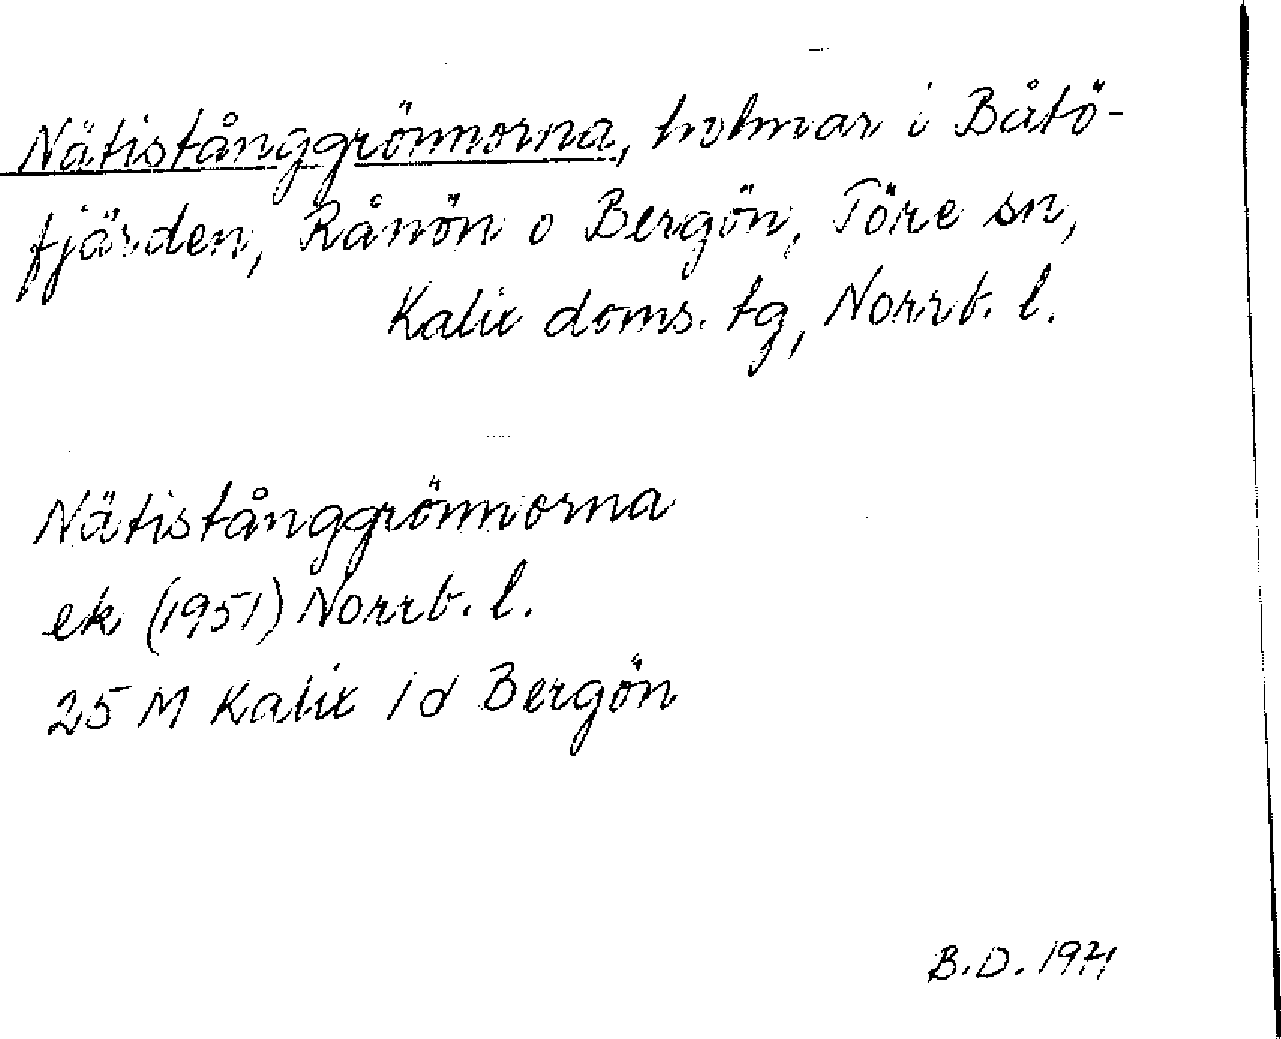 Nätistånggrönnorna, holmar i Båtö-
fjärden, Rånön o Bergön, Töre sn,
Kalix doms. tg, Norrb. l.
Nätistånggrönnorna
ek (1951) Norrb. l.
25 M Kalix 1 d Bergön
B.D. 1971